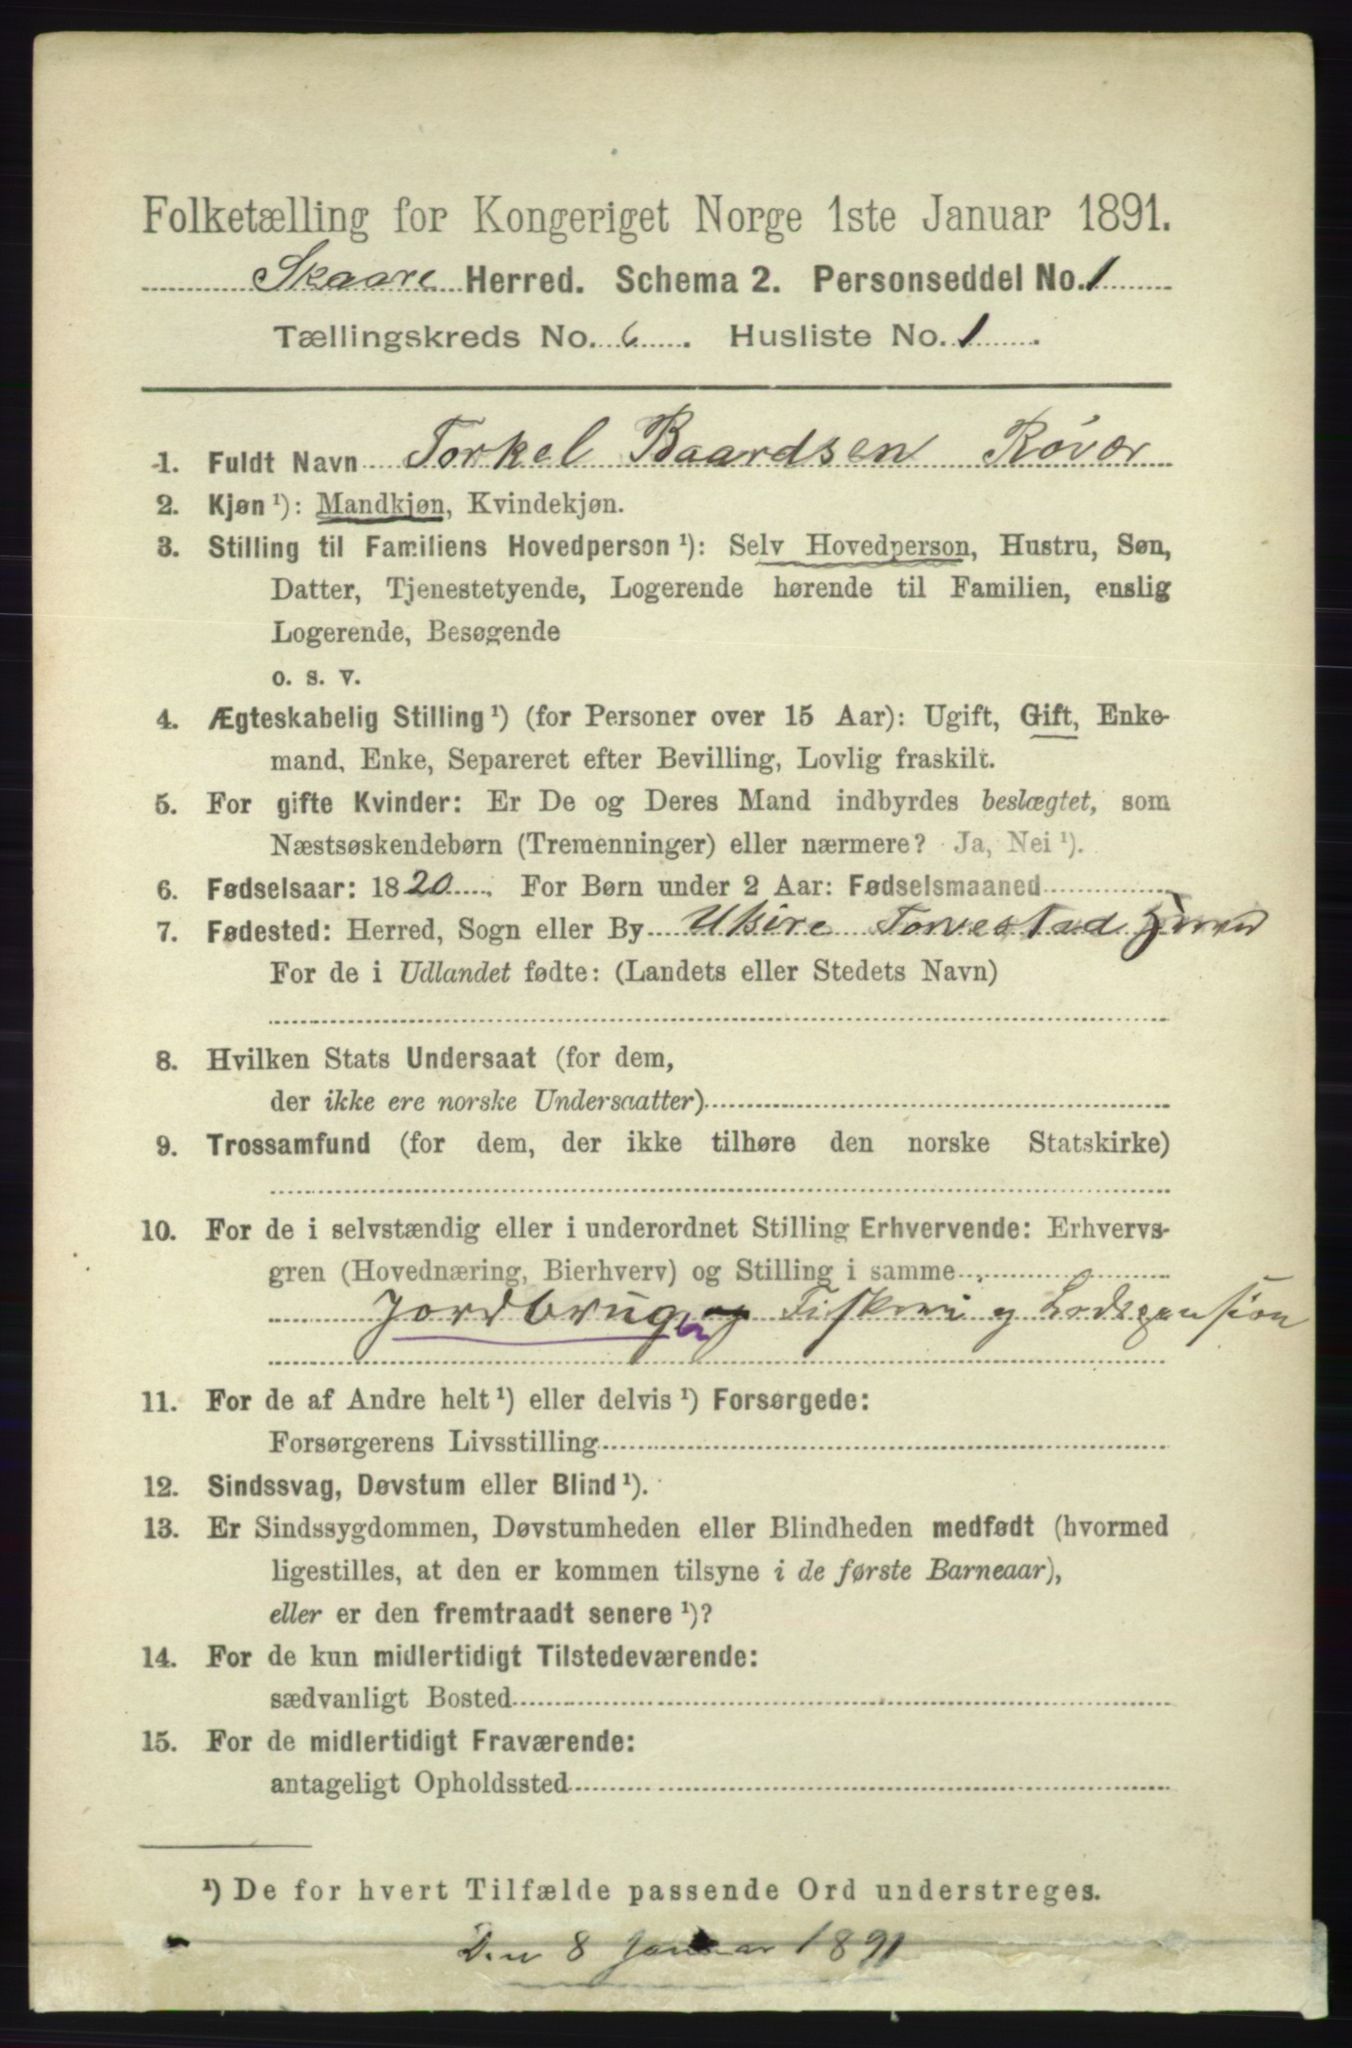 Folketælling for Kongeriget Norge 1ste Januar 1891.
Skaare Herred. Schema 2. Personseddel No. 1
Tællingskreds No. 6. Husliste No. 1.
1. Fuldt Navn Torkel Baardsen Røvær
2. Kjøn ¹): Mandkjøn, Kvindekjøn.
3. Stilling til Familiens Hovedperson ¹): Selv Hovedperson, Hustru, Søn,
Datter, Tjenestetyende, Logerende hørende til Familien, enslig
Logerende, Besøgende
o. s. v.
4. Ægteskabelig Stilling ¹) (for Personer over 15 Aar): Ugift, Gift, Enke-
mand, Enke, Separeret efter Bevilling, Lovlig fraskilt.
5. For gifte Kvinder: Er De og Deres Mand indbyrdes beslægtet, som
Næstsøskendebørn (Tremenninger) eller nærmere? Ja, Nei ¹).
6. Fødselsaar: 1820. For Børn under 2 Aar: Fødselsmaaned
7. Fødested: Herred, Sogn eller By Utsire Torvestad
For de i Udlandet fødte: (Landets eller Stedets Navn)
8. Hvilken Stats Undersaat (for dem,
der ikke ere norske Undersaatter)
9. Trossamfund (for dem, der ikke tilhøre den norske Statskirke)
10. For de i selvstændig eller i underordnet Stilling Erhvervende: Erhvervs-
gren (Hovednæring, Bierhverv) og Stilling i samme
Jordbrug og Fiskeri og Lodspension
11. For de af Andre helt ¹) eller delvis ¹) Forsørgede:
Forsørgerens Livsstilling
12. Sindssvag, Døvstum eller Blind ¹).
13. Er Sindssygdommen, Døvstumheden eller Blindheden medfødt (hvormed
ligestilles, at den er kommen tilsyne i de første Barneaar),
eller er den fremtraadt senere ¹)?
14. For de kun midlertidigt Tilstedeværende:
sædvanligt Bosted
15. For de midlertidigt Fraværende:
antageligt Opholdssted
¹) De for hvert Tilfælde passende Ord understreges.
Den 8 Januar 1891